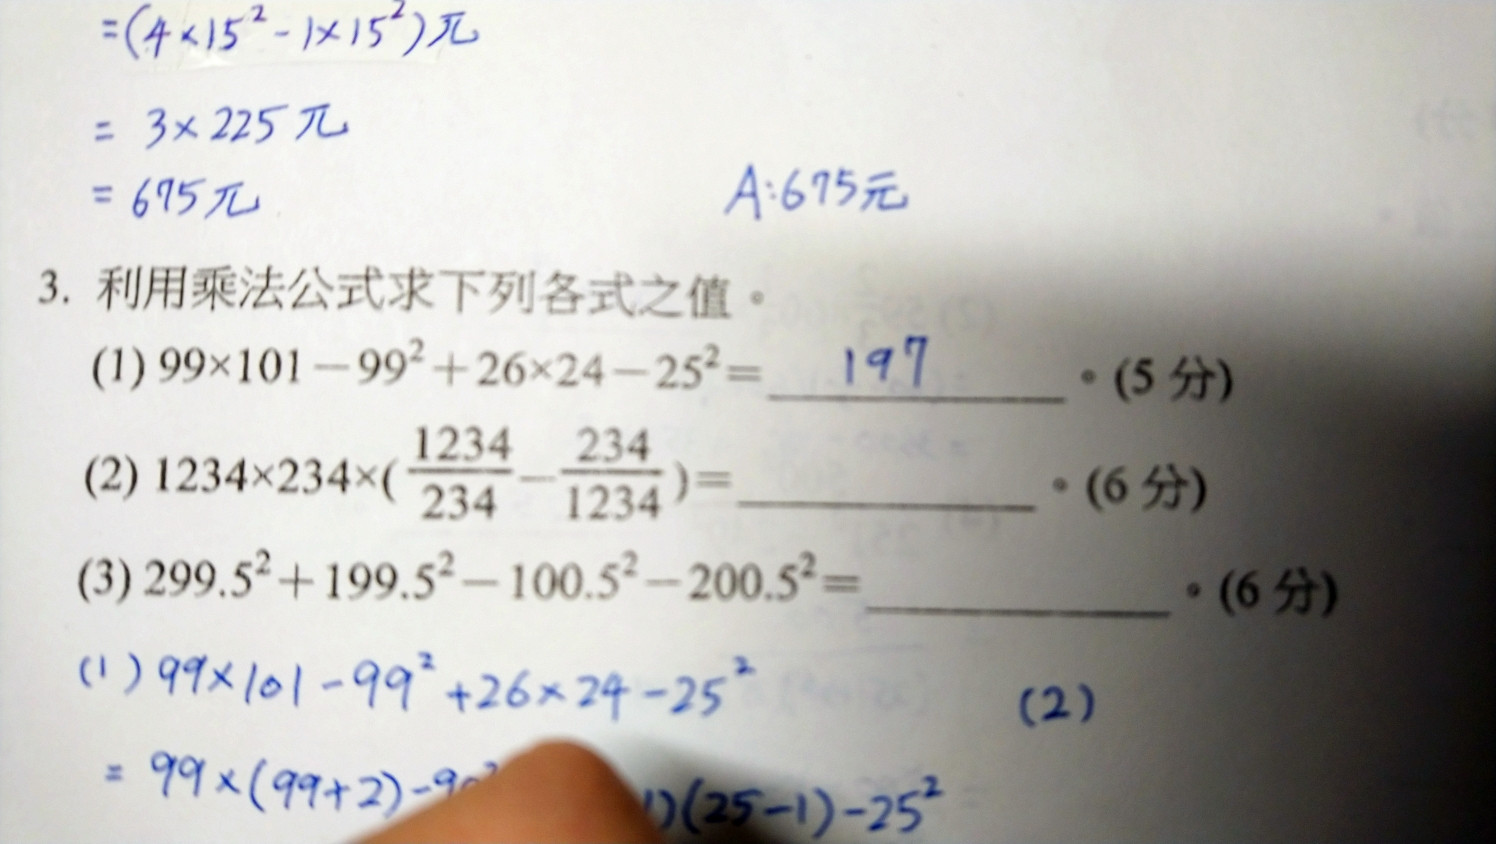 =(4×15²-1×15²)元
= 3×225元
= 675元
A:675元
3. 利用乘法公式求下列各式之值。
(1) 99×101-99²+26×24-25²= 197 。(5 分)
(2) 1234×234×(1234/234-234/1234)= 。(6 分)
(3) 299.5²+199.5²-100.5²-200.5²= 。(6 分)
(1) 99×101-99²+26×24-25²
(2)
= 99×(99+2)-99² 1)(25-1)-25²